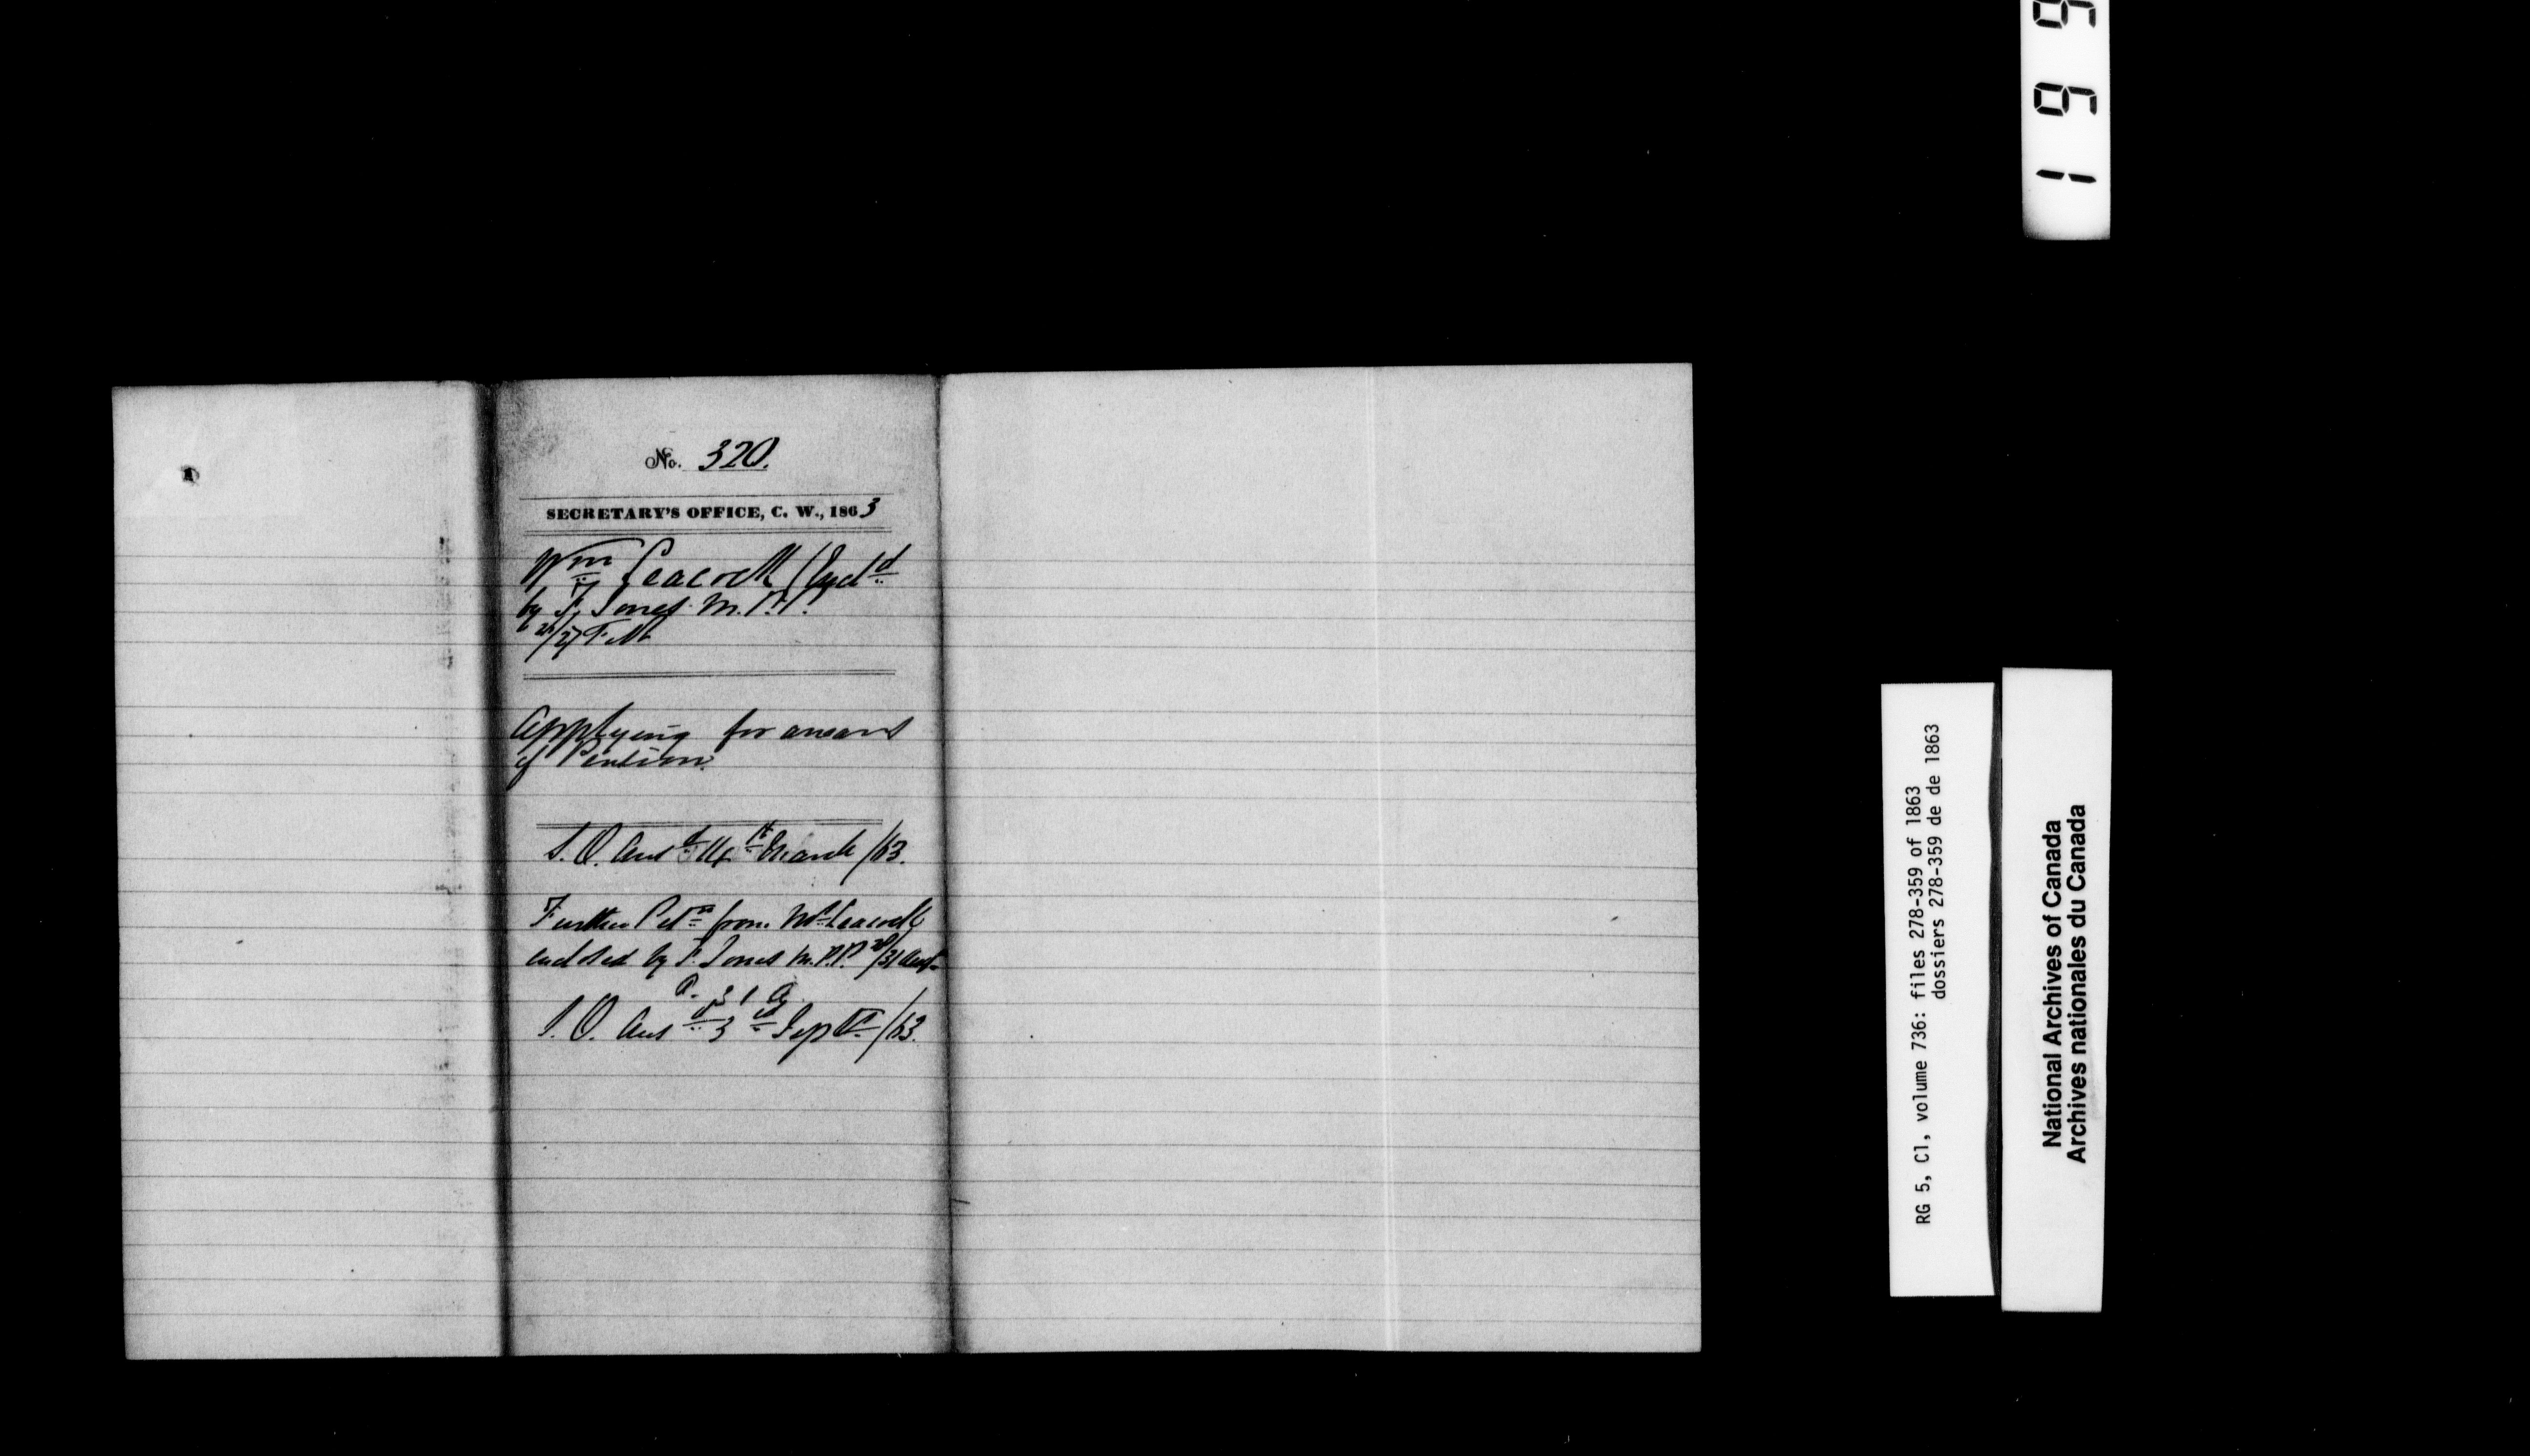 No. 320.
SECRETARY'S OFFICE, C. W., 1863
Wm Peacock (Encld
by F. Jones M.P.P.
/27 Feb
Applying for arrears
of Pension.
S.O. Ansd 14th March /63.
Further Petn from Wm Peacock
enclosed by F. Jones M.P.P. /31 Augt
S.O. Ansd 3d Sept /63.
RG 5, C1, volume 736: files 278-359 of 1863
dossiers 278-359 de de 1863
National Archives of Canada
Archives nationales du Canada